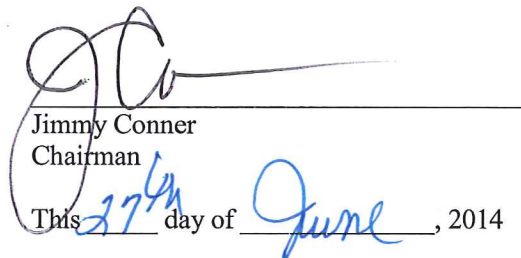 J Co
Jimmy Conner
Chairman
This 27th day of June, 2014